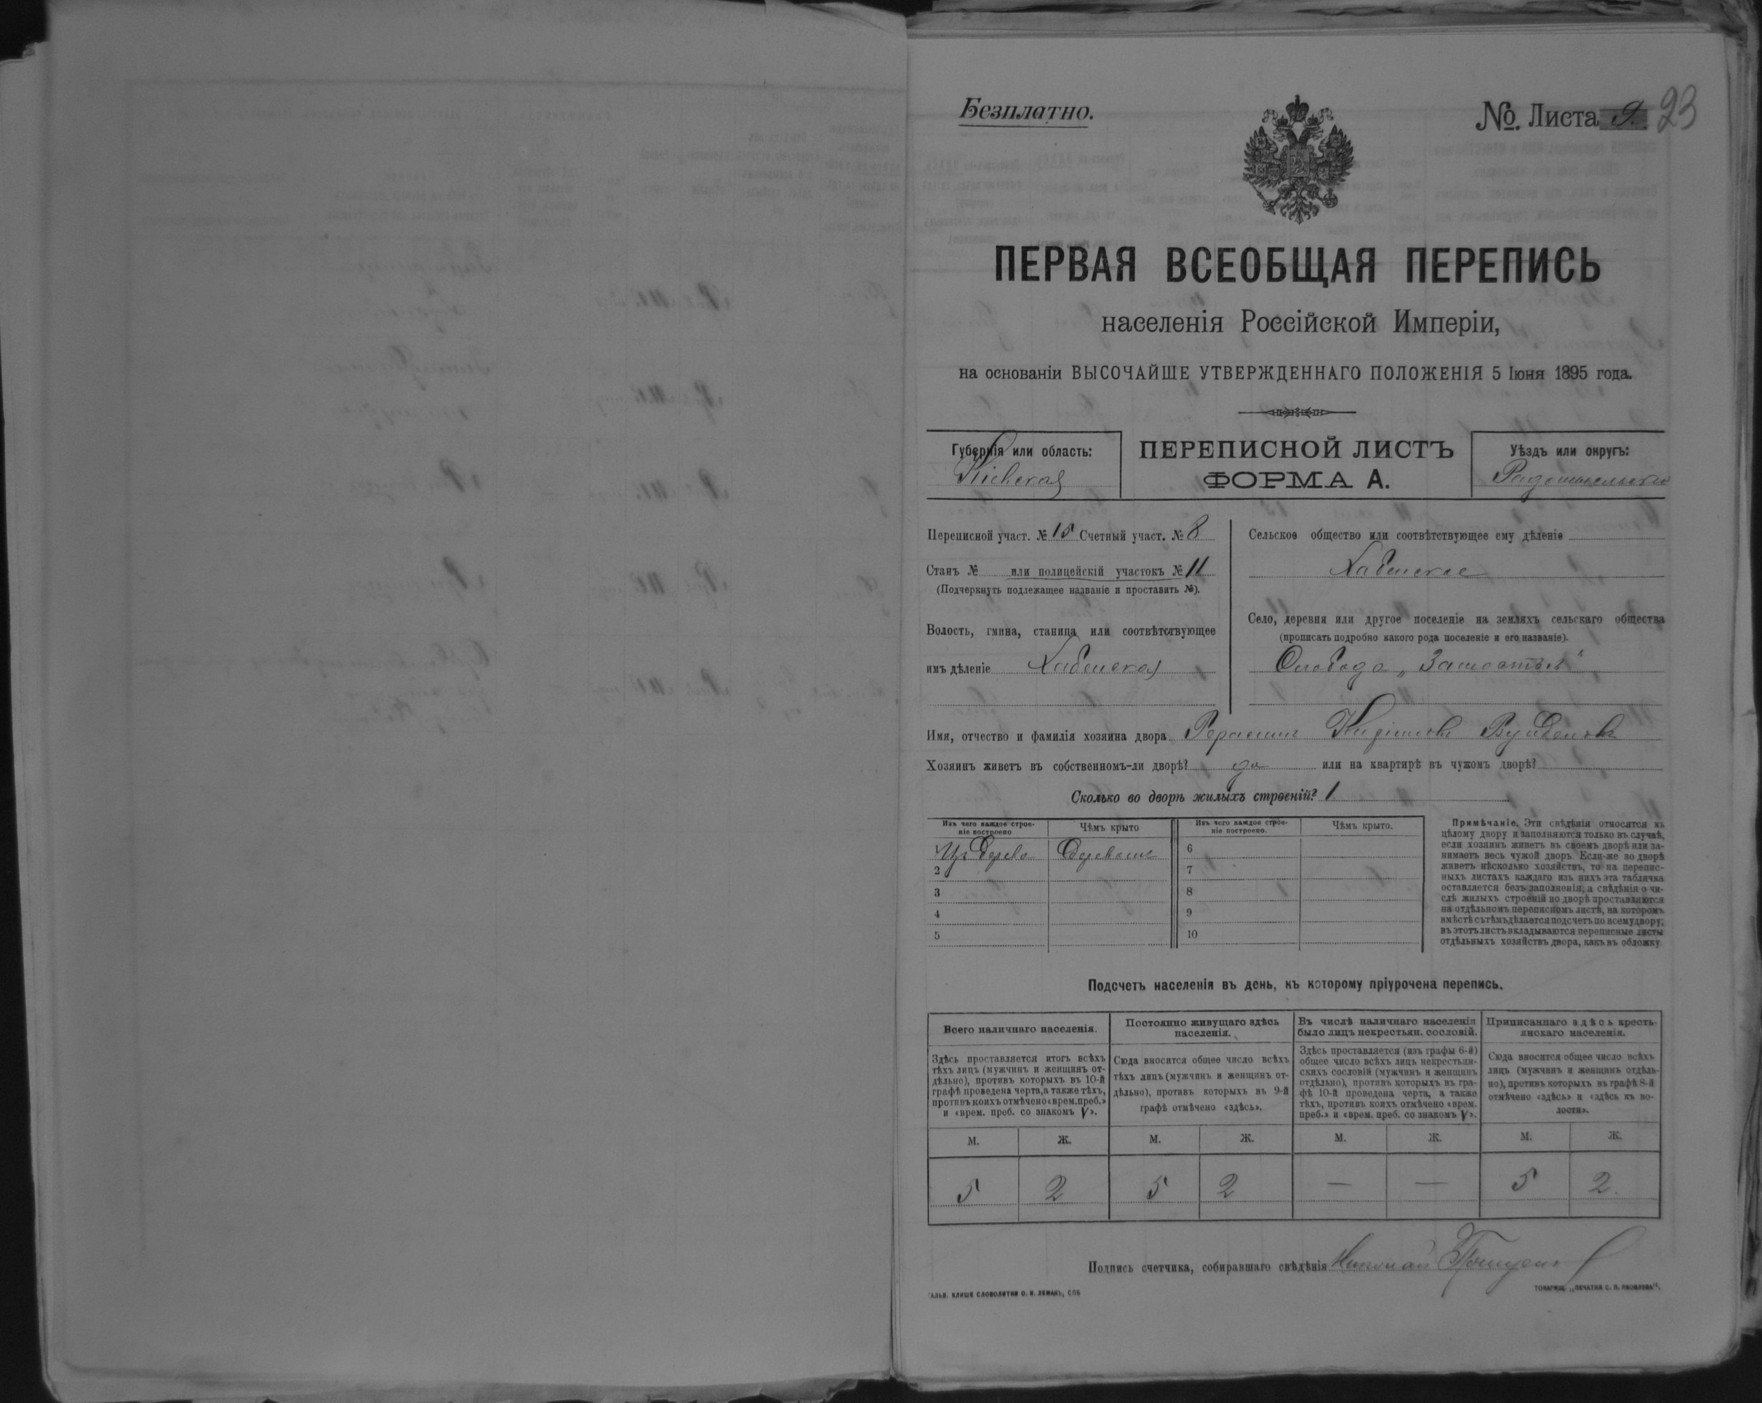 Безплатно.
№. Листа 9. 23
ПЕРВАЯ ВСЕОБЩАЯ ПЕРЕПИСЬ
населенія Россійской Имперіи,
на основаніи ВЫСОЧАЙШЕ УТВЕРЖДЕННАГО ПОЛОЖЕНІЯ 5 Іюня 1895 года.
Губернія или область:
Кіевская
ПЕРЕПИСНОЙ ЛИСТЪ
ФОРМА А.
Уѣздъ или округъ:
Переписной участ. № 15 Счетный участ. № 8
Станъ № или полицейскій участокъ № 11
(Подчеркнуть подлежащее названіе и проставить №).
Волость, гмина, станица или соотвѣтствующее
имъ дѣленіе Хабенская
Сельское общество или соотвѣтствующее ему дѣленіе
Хабенское
Село, деревня или другое поселеніе на земляхъ сельскаго общества
(прописать подробно какого рода поселеніе и его названіе).
Слобода
Имя, отчество и фамилія хозяина двора
Хозяинъ живетъ въ собственномъ-ли дворѣ? да или на квартирѣ въ чужомъ дворѣ?
Сколько во дворѣ жилыхъ строеній? 1
Изъ чего каждое строе-
ніе построено
Чѣмъ крыто
Изъ чего каждое строе-
ніе построено.
Чѣмъ крыто.
1 Изъ дерева Деревомъ
2
3
4
5
6
7
8
9
10
Примѣчаніе. Эти свѣдѣнія относятся къ
цѣлому двору и заполняются только въ случаѣ,
если хозяинъ живетъ въ своемъ дворѣ или за-
нимаетъ весь чужой дворъ. Если-же во дворѣ
живетъ нѣсколько хозяйствъ, то на перепис-
ныхъ листахъ каждаго изъ нихъ эта табличка
оставляется безъ заполненія, а свѣдѣнія о чи-
слѣ жилыхъ строеній во дворѣ проставляются
на отдѣльномъ переписномъ листѣ, на которомъ
вмѣстѣ съ тѣмъ дѣлается подсчетъ по всему двору;
въ этотъ листъ вкладываются переписные листы
отдѣльныхъ хозяйствъ двора, какъ въ обложку.
Подсчетъ населенія въ день, къ которому пріурочена перепись.
Всего наличнаго населенія.
Здѣсь проставляется итогъ всѣхъ
тѣхъ лицъ (мужчинъ и женщинъ от-
дѣльно), противъ которыхъ въ 10-й
графѣ проведена черта, а также тѣхъ,
противъ коихъ отмѣчено «врем. преб.»
и «врем. преб. со знакомъ V».
Постоянно живущаго здѣсь
населенія.
Сюда вносится общее число всѣхъ
тѣхъ лицъ (мужчинъ и женщинъ от-
дѣльно), противъ которыхъ въ 9-й
графѣ отмѣчено «здѣсь».
Въ числѣ наличнаго населенія
было лицъ некрестьян. сословій.
Здѣсь проставляется (изъ графы 6-й)
общее число всѣхъ лицъ некрестьян-
скихъ сословій (мужчинъ и женщинъ
отдѣльно), противъ которыхъ въ гра-
фѣ 10-й проведена черта, а также
тѣхъ, противъ коихъ отмѣчено «врем.
преб.» и «врем. преб. со знакомъ V».
Приписаннаго здѣсь кресть-
янскаго населенія.
Сюда вносится общее число всѣхъ
лицъ (мужчинъ и женщинъ отдѣль-
но), противъ которыхъ въ графѣ 8-й
отмѣчено «здѣсь» и «здѣсь къ во-
лости».
М. Ж. М. Ж. М. Ж. М. Ж.
5 2 5 2 — — 5 2
Подпись счетчика, собиравшаго свѣдѣнія Николай
ГАЛЬВ. КЛИШЕ СЛОВОЛИТНИ О. И. ЛЕМАНЪ, СПБ
ТОВАРИЩ. „ПЕЧАТНИ С. П. ЯКОВЛЕВА".